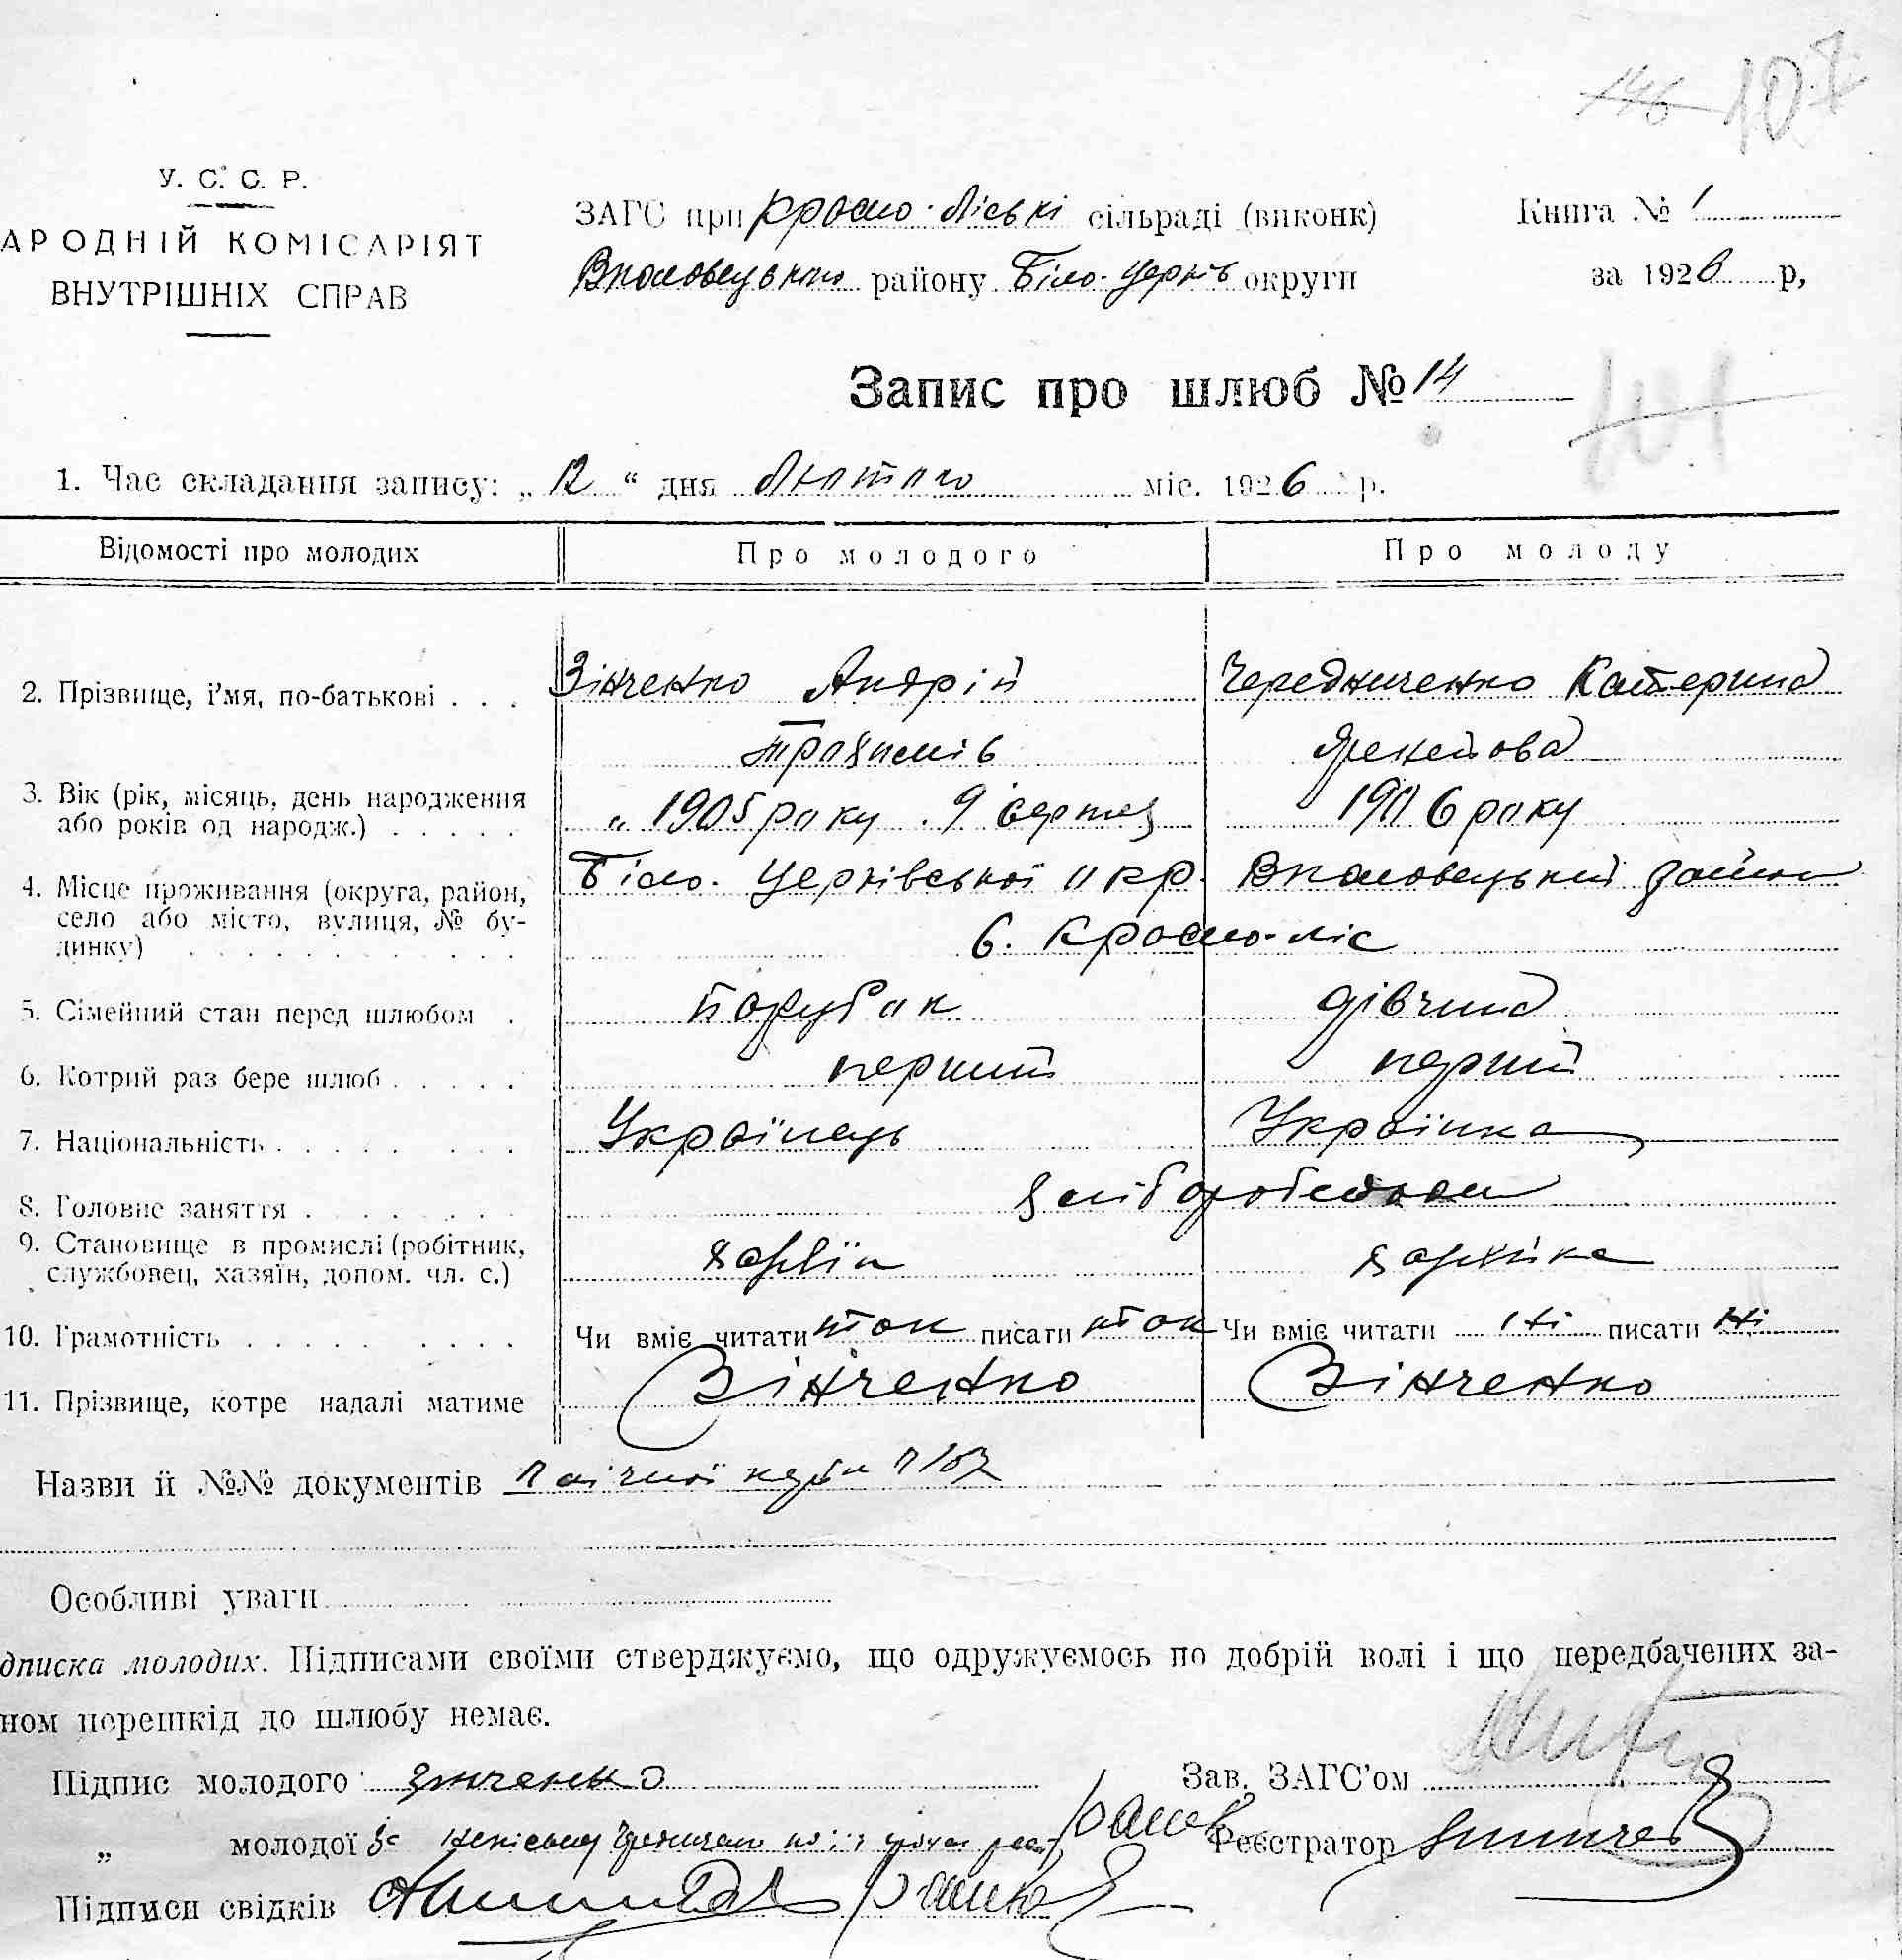 146 107
У. С. С. Р.
АРОДНІЙ КОМІСАРІЯТ
ВНУТРІШНІХ СПРАВ
ЗАГС при Красно-Ліські сільраді (виконк)
району Біло-Церків округи
Книга № 1
за 1926 р,
Запис про шлюб № 14
1. Час складання запису: „ 12 “ дня Лютого міс. 1926 р.
Відомості про молодих Про молодого Про молоду
2. Прізвище, і'мя, по-батькові . . . Зінченко Андрій Чередниченко Катерина
3. Вік (рік, місяць, день народження
або років од народж.) . . . . . „ 1905 року 9 серпня 1906 року
4. Місце проживання (округа, район,
село або місто, вулиця, № бу-
динку) . . . . . . . . . . . .
Біло-Церківської окр. район
с. Красно-ліс
5. Сімейний стан перед шлюбом . парубак дівчина
6. Котрий раз бере шлюб . . . . . перший перший
7. Національність . . . . . . . . Українець Українка
8. Головне заняття . . . . . . .
9. Становище в промислі (робітник,
службовец, хазяїн, допом. чл. с.) хазяїн хазяйка
10. Грамотність . . . . . . . . . Чи вміє читати так писати так Чи вміє читати ні писати ні
11. Прізвище, котре надалі матиме Зінченко Зінченко
Назви й №№ документів
Особливі уваги
дписка молодих. Підписами своїми стверджуємо, що одружуємось по добрій волі і що передбачених за-
ном перешкід до шлюбу немає.
Підпис молодого Зинченко Зав. ЗАГС'ом
„ молодої За Реєстратор
Підписи свідків